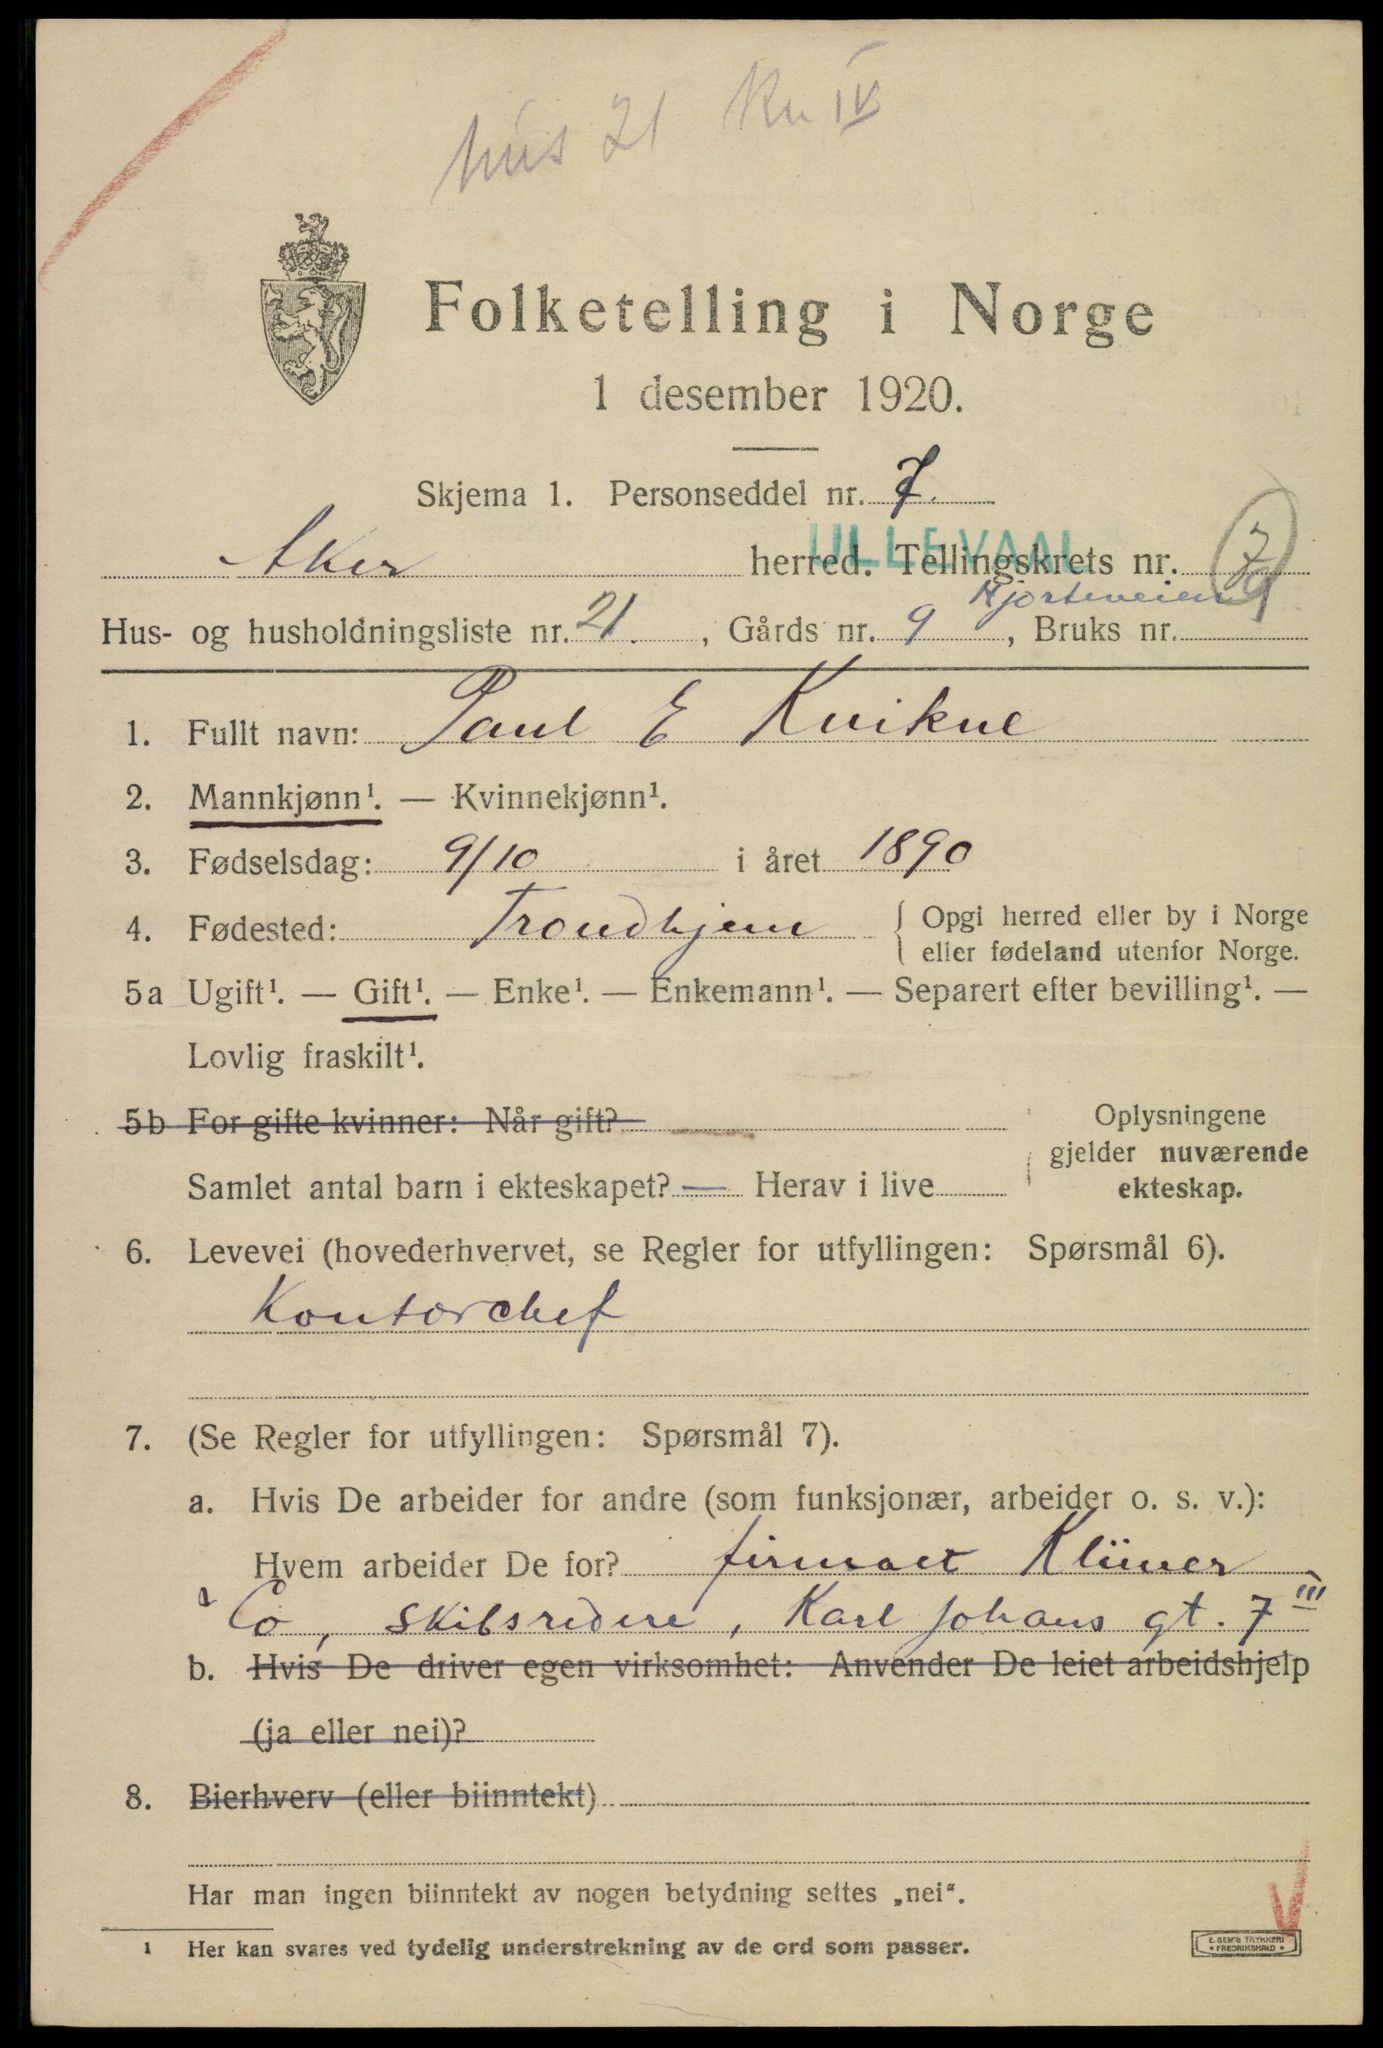 hus 21 Kr IV
Folketelling i Norge
1 desember 1920.
Skjema 1. Personseddel nr. 7.
ULLEVAAL
Aker herred. Tellingskrets nr. 7
Hjorteveien 9
Hus- og husholdningsliste nr. 21. , Gårds nr. 9 , Bruks nr.
1. Fullt navn: Paul E Kvikne
2. Mannkjønn¹. — Kvinnekjønn¹.
3. Fødselsdag: 9/10 i året 1890
4. Fødested: Trondhjem { Opgi herred eller by i Norge
eller fødeland utenfor Norge.
5a Ugift¹. — Gift¹. — Enke¹. — Enkemann¹. — Separert efter bevilling¹. —
Lovlig fraskilt¹.
5b For gifte kvinner: Når gift?
Samlet antal barn i ekteskapet? — Herav i live
Oplysningene
gjelder nuværende
ekteskap.
6. Levevei (hovederhvervet, se Regler for utfyllingen: Spørsmål 6).
Kontorchef
7. (Se Regler for utfyllingen: Spørsmål 7).
a. Hvis De arbeider for andre (som funksjonær, arbeider o. s. v.):
Hvem arbeider De for? firmaet Klüver
& Co, skibsredere, Karl Johans gt. 7 III
b. Hvis De driver egen virksomhet: Anvender De leiet arbeidshjelp
(ja eller nei)?
8. Bierhverv (eller biinntekt)
Har man ingen biinntekt av nogen betydning settes „nei“.
1 Her kan svares ved tydelig understrekning av de ord som passer.
E. SEM'S TRYKKERI
FREDRIKSHALD